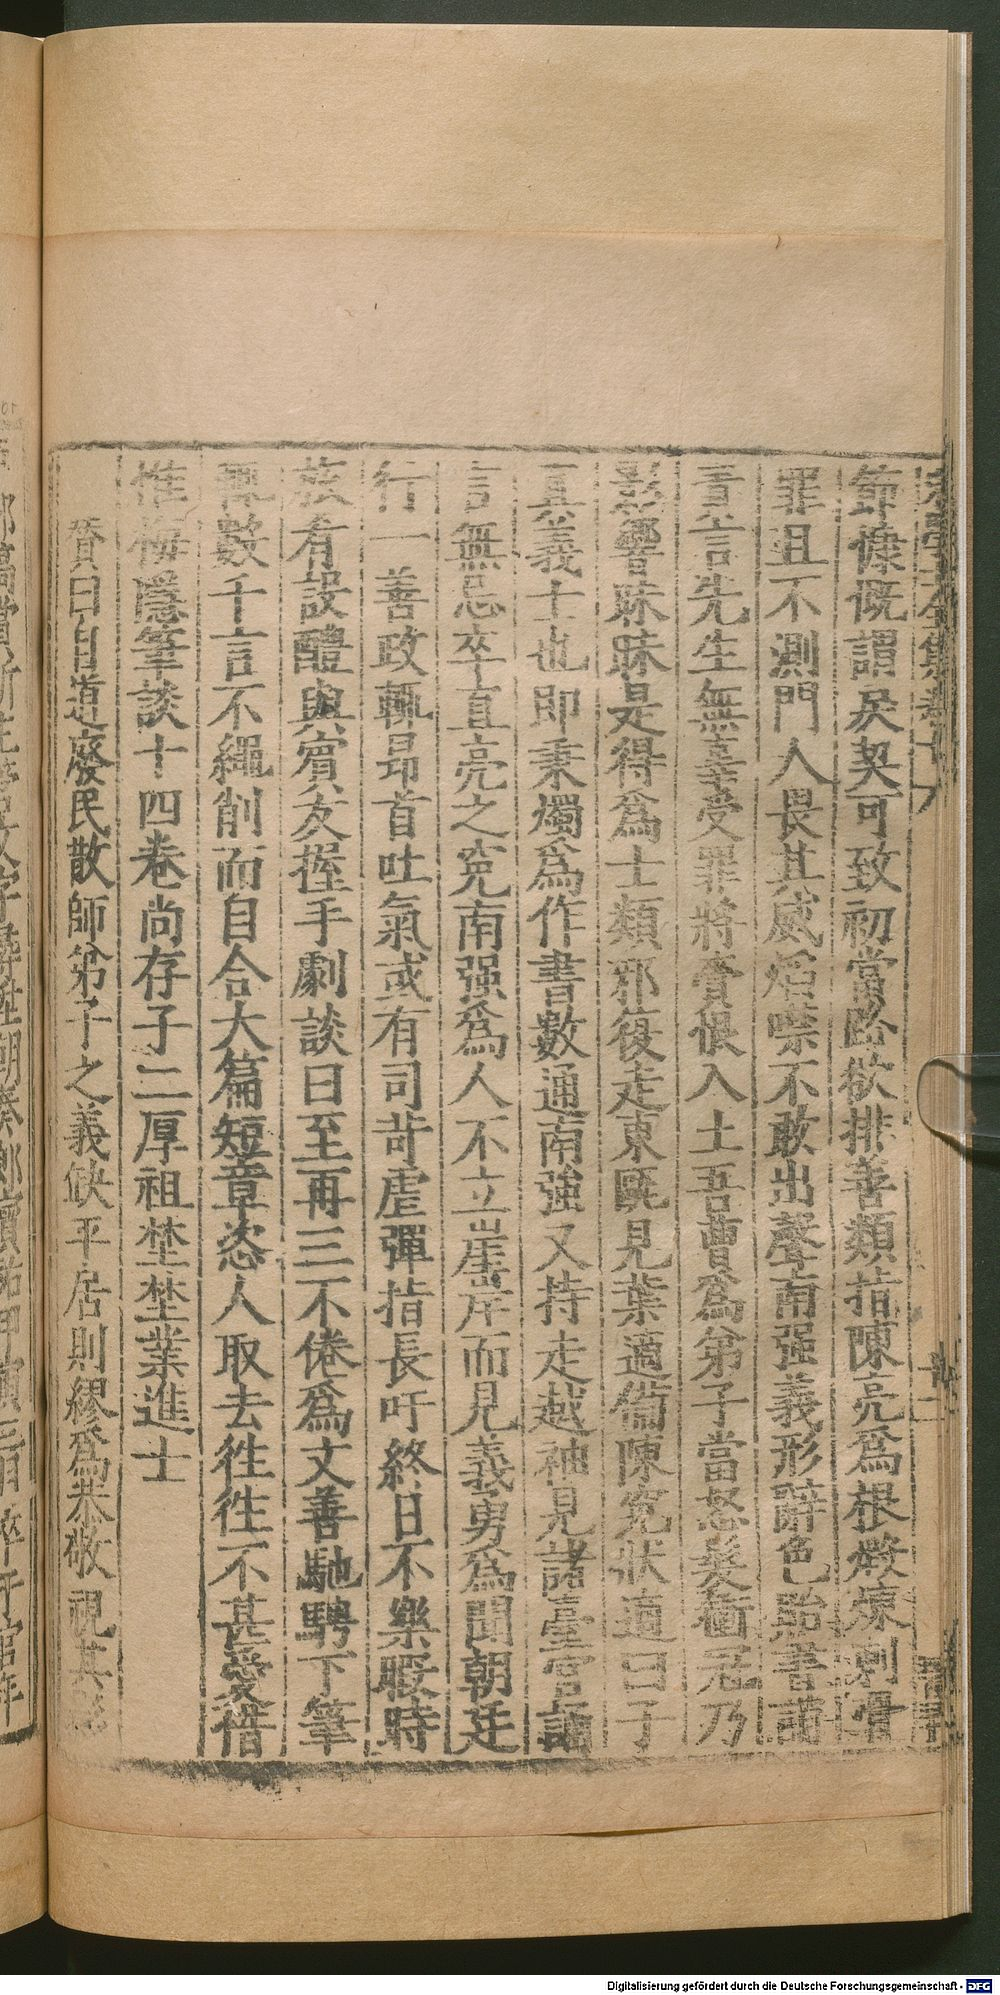 節慷慨謂矦契可致初當路欲排善類指陳亮爲根煅煉刺骨
罪且不測門人畏其威焰噤不敢出聲南强義形辭色貽書誚
責言先生無辜受罪將賫恨入土吾曹爲弟子當怒髮衝冠乃
影響昧昧是得爲士類邪復走東甌見葉適備陳寃狀適曰子
真義士也即秉燭爲作書數通南強又持走越袖見諸臺官誦
言無忌卒直亮之寃南强爲人不立崖岸而見義勇爲聞朝廷
行一善政輒昂首吐氣或有司苛虐彈指長吁終日不樂暇時
旅肴設醴與賓友握手劇談日至再三不倦爲文善馳騁下筆
輒數千言不繩削而自合大篇短章恣人取去徃徃不甚愛惜
惟梅隱筆談十四卷尚存子二厚祖埜埜業進士
賛曰自道廢民散師弟子之義缺平居則繆爲恭敬視其
Digitalisierung gefördert durch die Deutsche Forschungsgemeinschaft - DFG